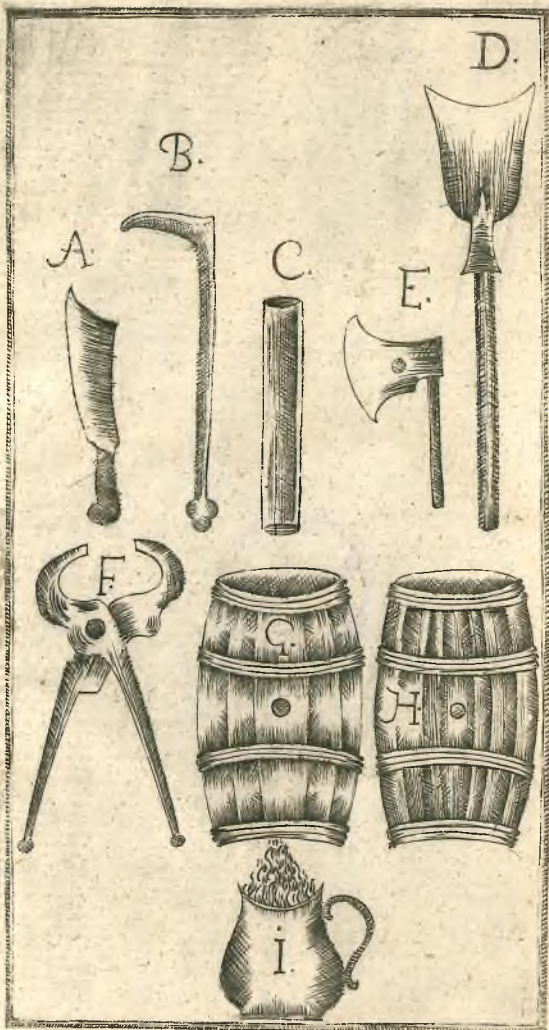 D.
B.
A.
C.
E.
F.
G.
H.
I.